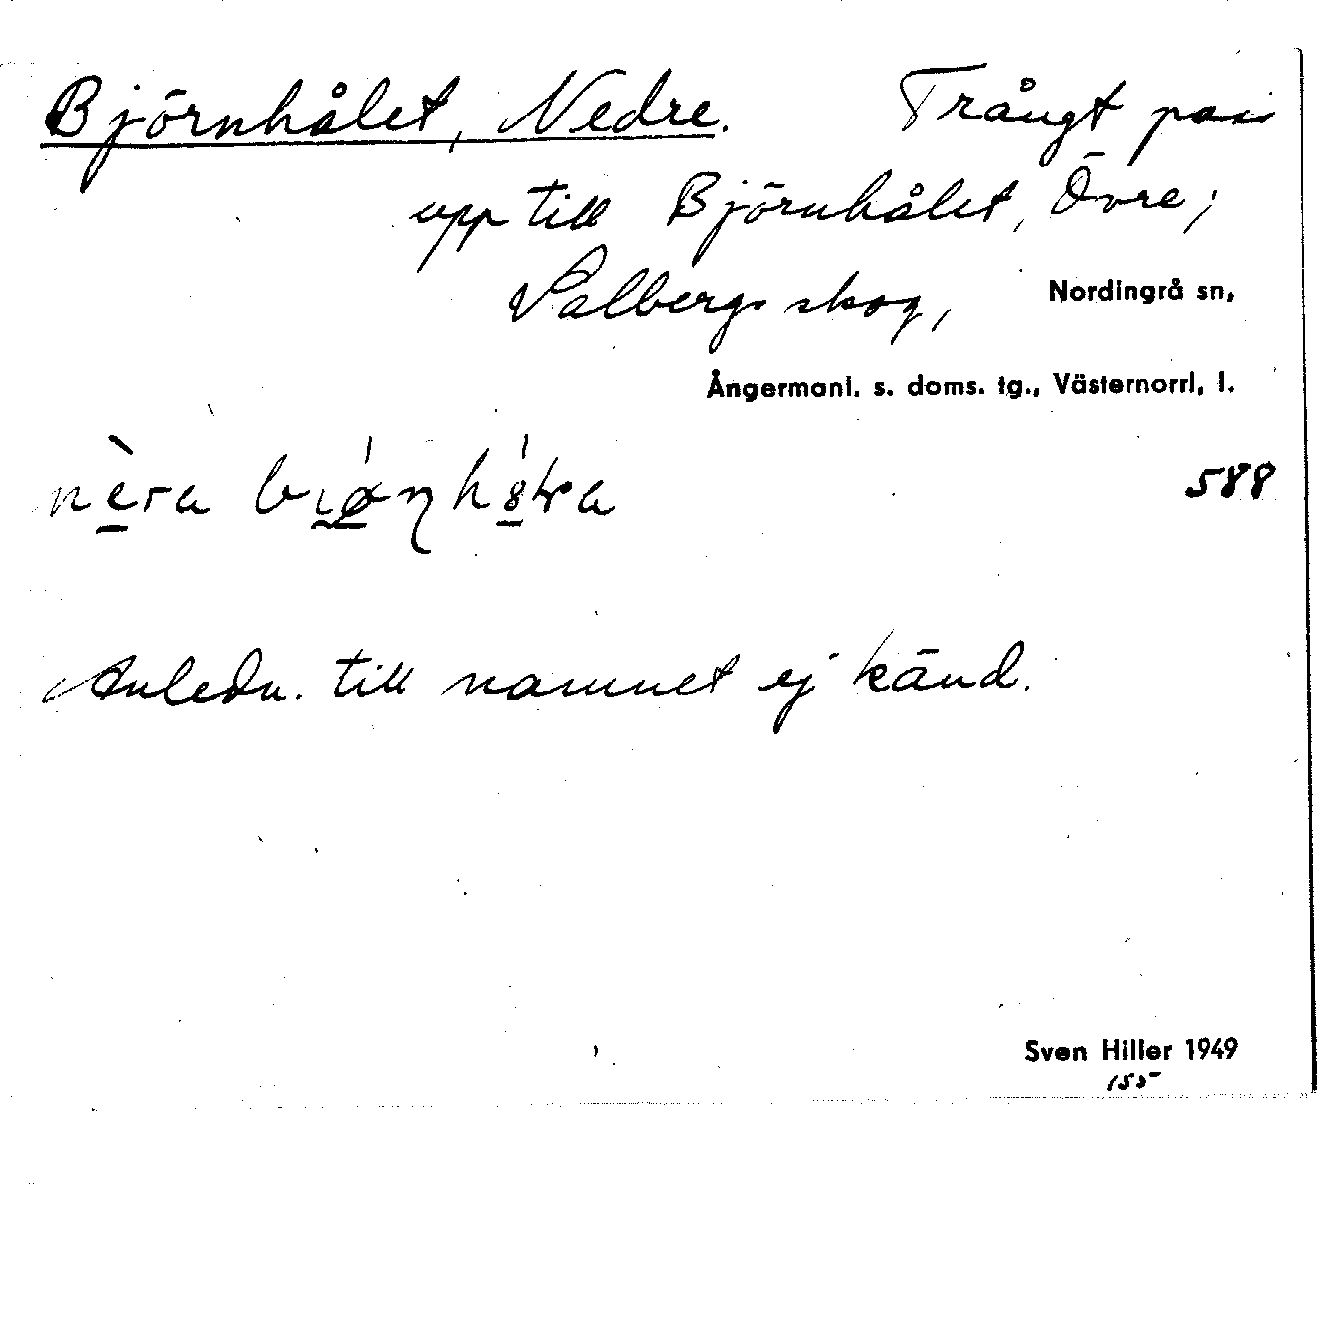 Björnhålet, Nedre. Trångt pass
upp till Björnhålet, Övre;
Salbergs skog, Nordingrå sn,
Ångermanl. s. doms. tg., Västernorrl, l.
nèra
588
Anledn. till namnet ej känd.
Sven Hiller 1949